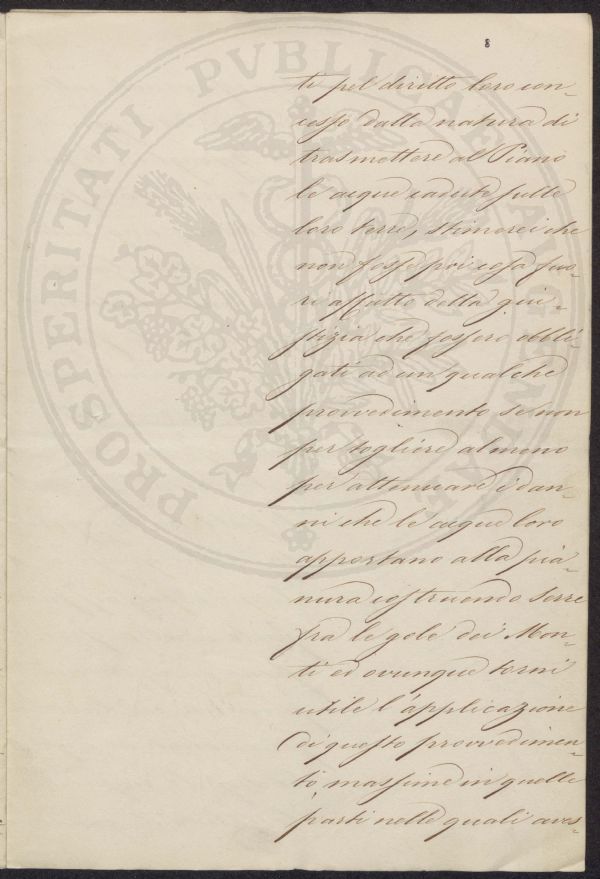 8
ti pel diritto loro con-
cesso dalla natura di
trasmettere al Piano
le acque cadute sulle
loro terre, stimerei che
non fosse poi cosa fuo-
ri affatto della giu-
stizia che fossero obbli-
gati ad un qualche
provvedimento se non
per togliere almeno
per attenuare i dan-
ni che le acque loro
apportano alla pia-
nura costruendo serre
fra le gole dei Mon-
ti ed ovunque torni
utile l'applicazione
di questo provvedimen-
to massime in quelle
parti nelle quali aves-
PROSPERITATI PVBLICAE AVGENDAE